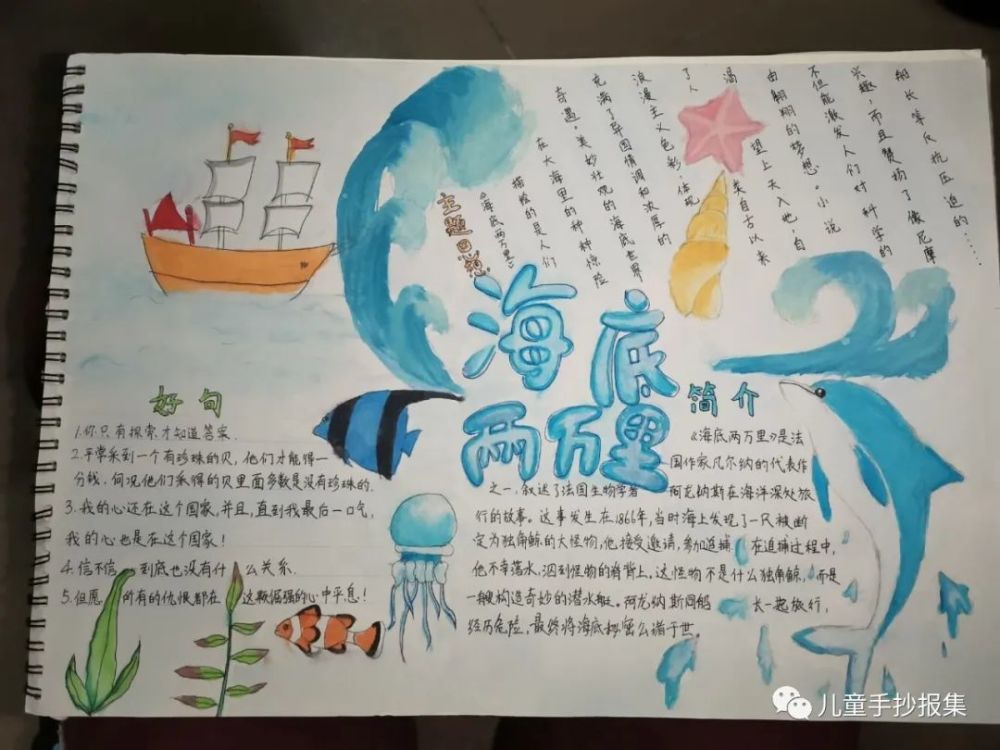 主题思想
《海底两万里》
描绘的是人们
在大海里的种种惊险
奇遇,美妙壮观的海底世界
充满了异国情调和浓厚的
浪漫主义色彩,体现
了人类自古以来
渴望上天入地,自
由翱翔的梦想。小说
不但能激发人们对科学的
兴趣,而且赞扬了像尼摩
船长等反抗压迫的……
海底
两万里
好句
1.你只有探索才知道答案.
2.平常采到一个有珍珠的贝,他们才能得一
分钱,何况他们采得的贝里面多数是没有珍珠的.
3.我的心还在这个国家,并且,直到我最后一口气,
我的心也是在这个国家!
4.信不信 到底也没有什么关系.
5.但愿所有的仇恨都在这颗倔强的心中平息!
简介
《海底两万里》是法
国作家凡尔纳的代表作
之一,叙述了法国生物学者阿龙纳斯在海洋深处旅
行的故事。这事发生在1866年,当时海上发现了一只被断
定为独角鲸的大怪物,他接受邀请,参加追捕,在追捕过程中,
他不幸落水,泅到怪物的脊背上,这怪物不是什么独角鲸,而是
一艘构造奇妙的潜水艇。阿龙纳斯同船长一起旅行,
经历危险,最终将海底秘密公诸于世。
儿童手抄报集